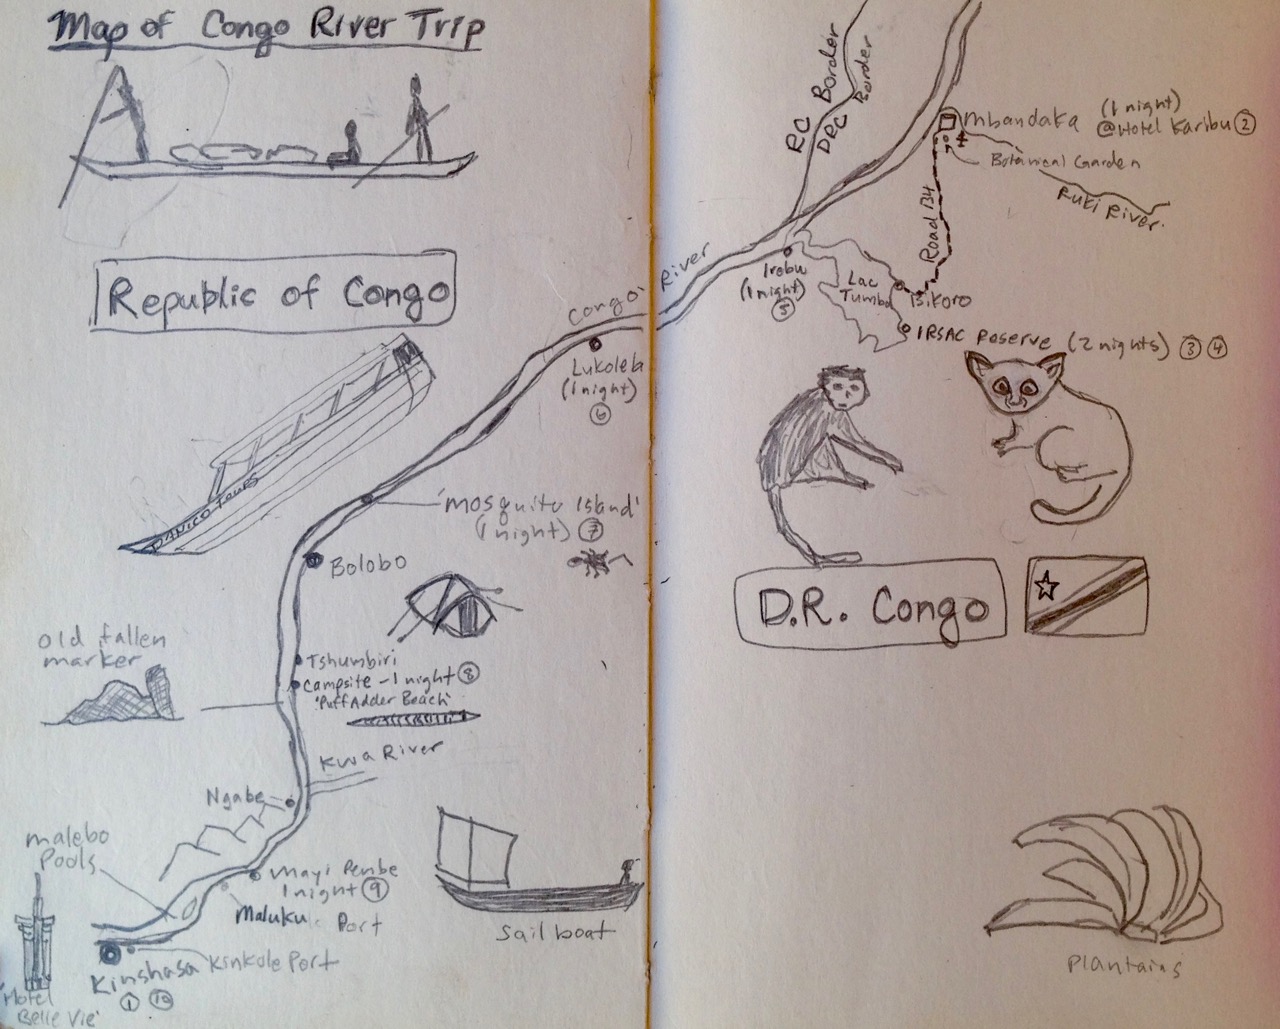 Map of Congo River Trip
Republic of Congo
Congo
River
RC Border
DRC Border
Mbandaka (1 night)
@Hotel Karibu 2
Botanical Garden
Ruki River
Road 134
Irebu
(1 night)
5
Lac
Tumba
Bikoro
IRSAC Reserve (2 nights) 3 4
Lukolela
(1 night)
6
DANICO TOURS
'Mosquito Island'
(1 night) 7
Bolobo
D.R. Congo
old fallen
marker
Tshumbiri
Campsite - 1 night 8
'Puff Adder Beach'
Kwa River
Ngabe
malebo
Pools
Mayi Pembe
1 night 9
Maluku Port
Sail boat
Kinkole Port
Kinshasa
1 10
Hotel
Belle Vie'
Plantains